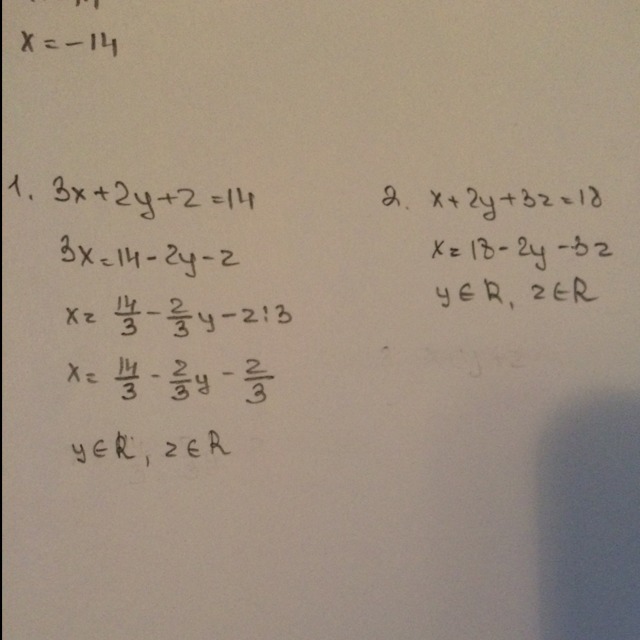 x = -14
1. 3x+2y+z=14
3x=14-2y-z
x= 14/3 - 2/3 y - z:3
x= 14/3 - 2/3 y - z/3
y∈R, z∈R
2. x+2y+3z=18
x=18-2y-3z
y∈R, z∈R